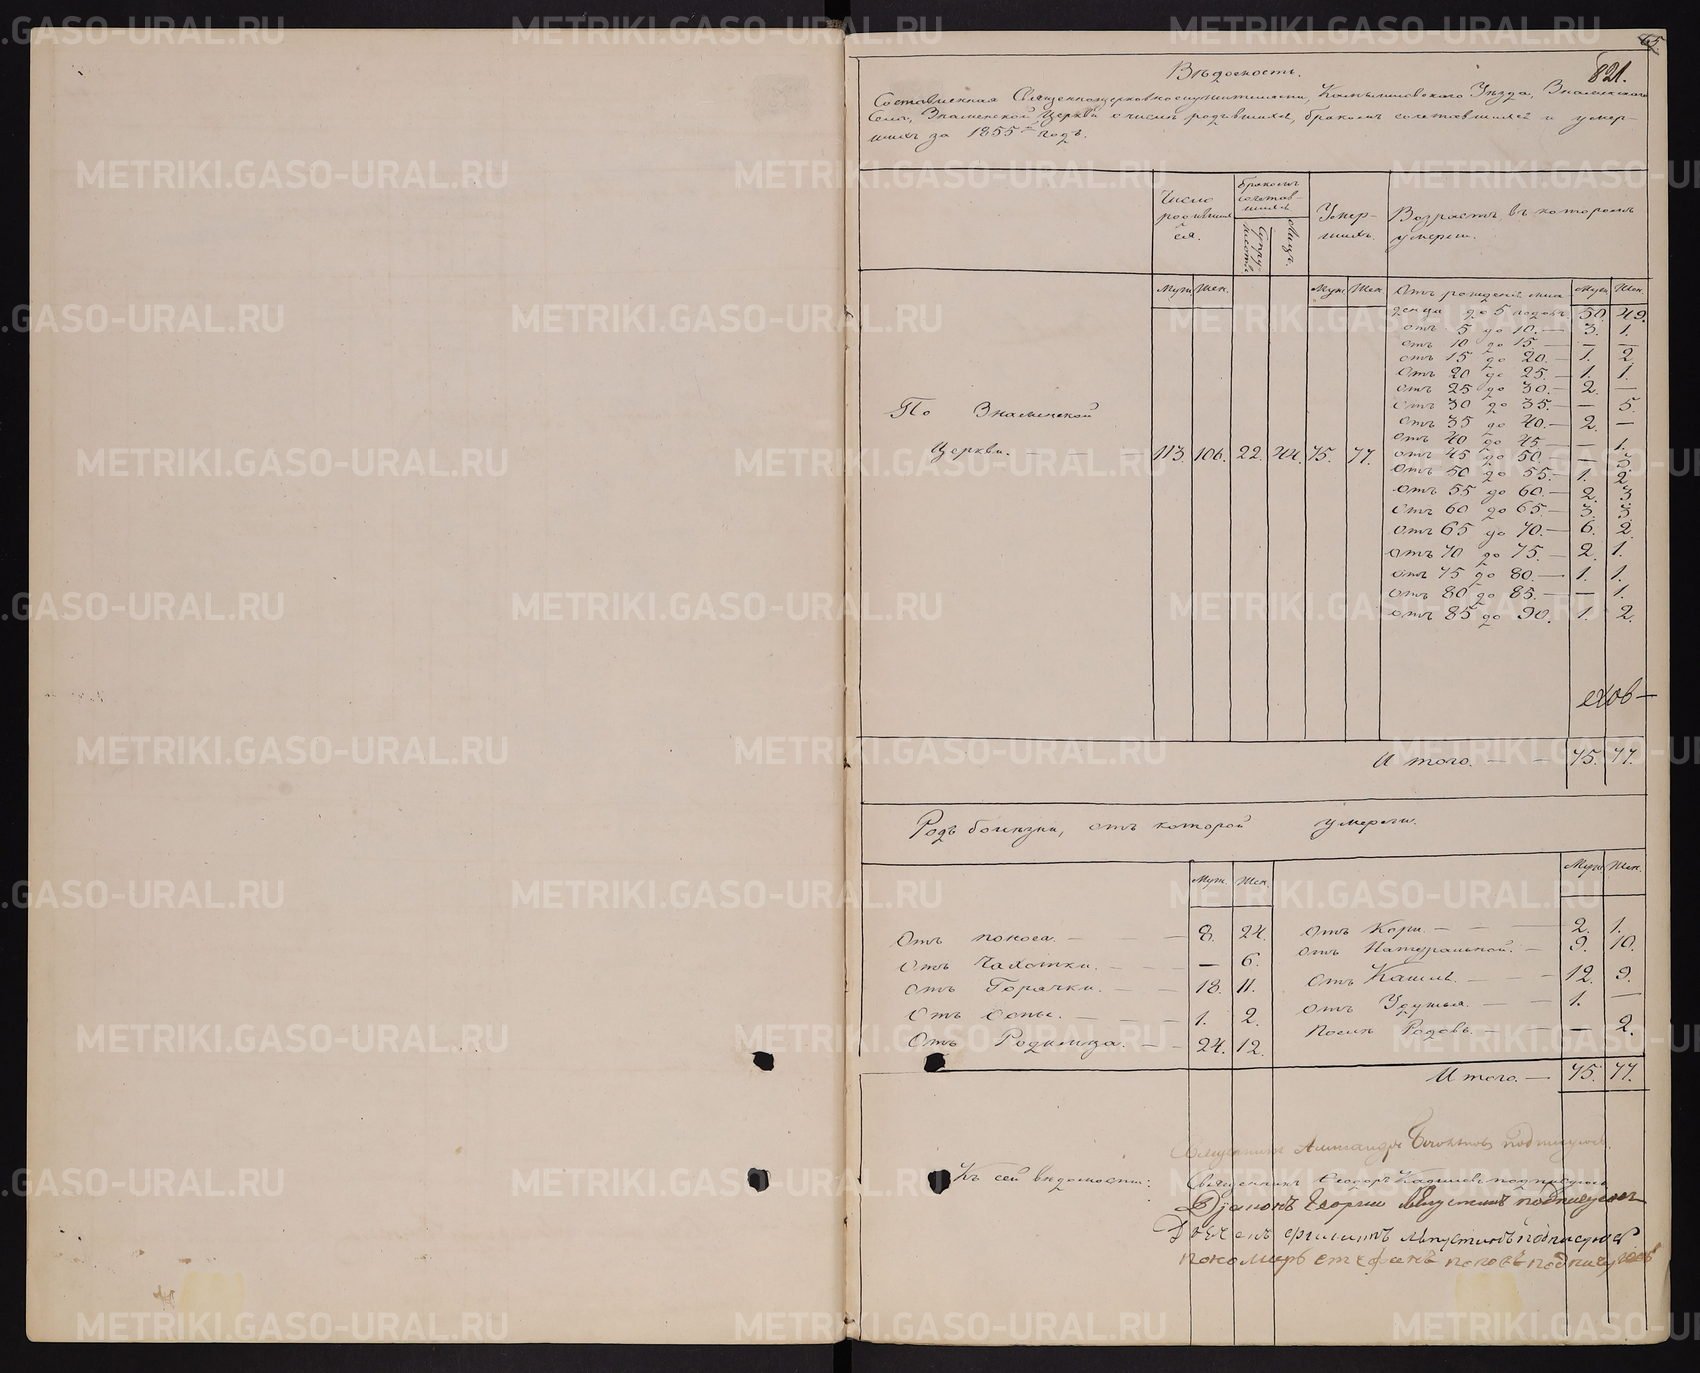 65
821.
Вѣдомость.
Составленная Священноцерковнослужителями, Камышловскаго Уѣзда, Знаменскаго
Села, Знаменской Церкви о числѣ родившихся, бракомъ сочетавшихся и умер-
шихъ за 1855й годъ.
Число родившихся.
Бракомъ сочетавшихся
Супружествъ
Лицъ.
Умер-
шихъ.
Возрастъ, въ которомъ
умерли.
Муж. Жен. Муж. Жен. Отъ рожденія мла Муж. Жен.
денцы до 5 годовъ. 50. 49.
отъ 5 до 10. — 3. 1.
отъ 10 до 15 — — —
отъ 15 до 20. — 1. 2.
отъ 20 до 25. — 1. 1.
отъ 25 до 30. — 2. —
отъ 30 до 35. — — 5.
отъ 35 до 40. — 2. —
отъ 40 до 45 — — 1.
отъ 45 до 50 — — 3.
отъ 50 до 55. — 1. 2.
отъ 55 до 60. — 2. 3.
отъ 60 до 65. — 3. 3.
отъ 65 до 70. — 6. 2.
отъ 70 до 75. — 2. 1.
отъ 75 до 80. — 1. 1.
отъ 80 до 85. — — 1.
отъ 85 до 90. 1. 2.
По Знаменской
Церкви. — — — 113. 106. 22. 44. 75. 77.
Итого. — — 75. 77.
Родъ болѣзни, отъ которой умерли.
Муж. Жен. Муж. Жен.
Отъ поноса. — — — 8. 24. Отъ Кори. — — — 2. 1.
Отъ Чахотки. — — — — 6. отъ Натуральной. — 9. 10.
Отъ Горячки. — — — 18. 11. Отъ Кашля — — — 12. 9.
Отъ Оспы. — — — 1. 2. отъ Удушья. — — 1. —
Отъ Родимца. — — 24. 12. Послѣ Родовъ. — — — 2.
Итого. — 75. 77.
Священникъ Александръ подписуюсь.
Къ сей вѣдомости: Священникъ Ѳеодоръ подписуюсь
Діаконъ Георгій подписуюсь
Дьячекъ Филиппъ подписуюсь
пономарь стефанъ поповъ подписуюсь
METRIKI.GASO-URAL.RU